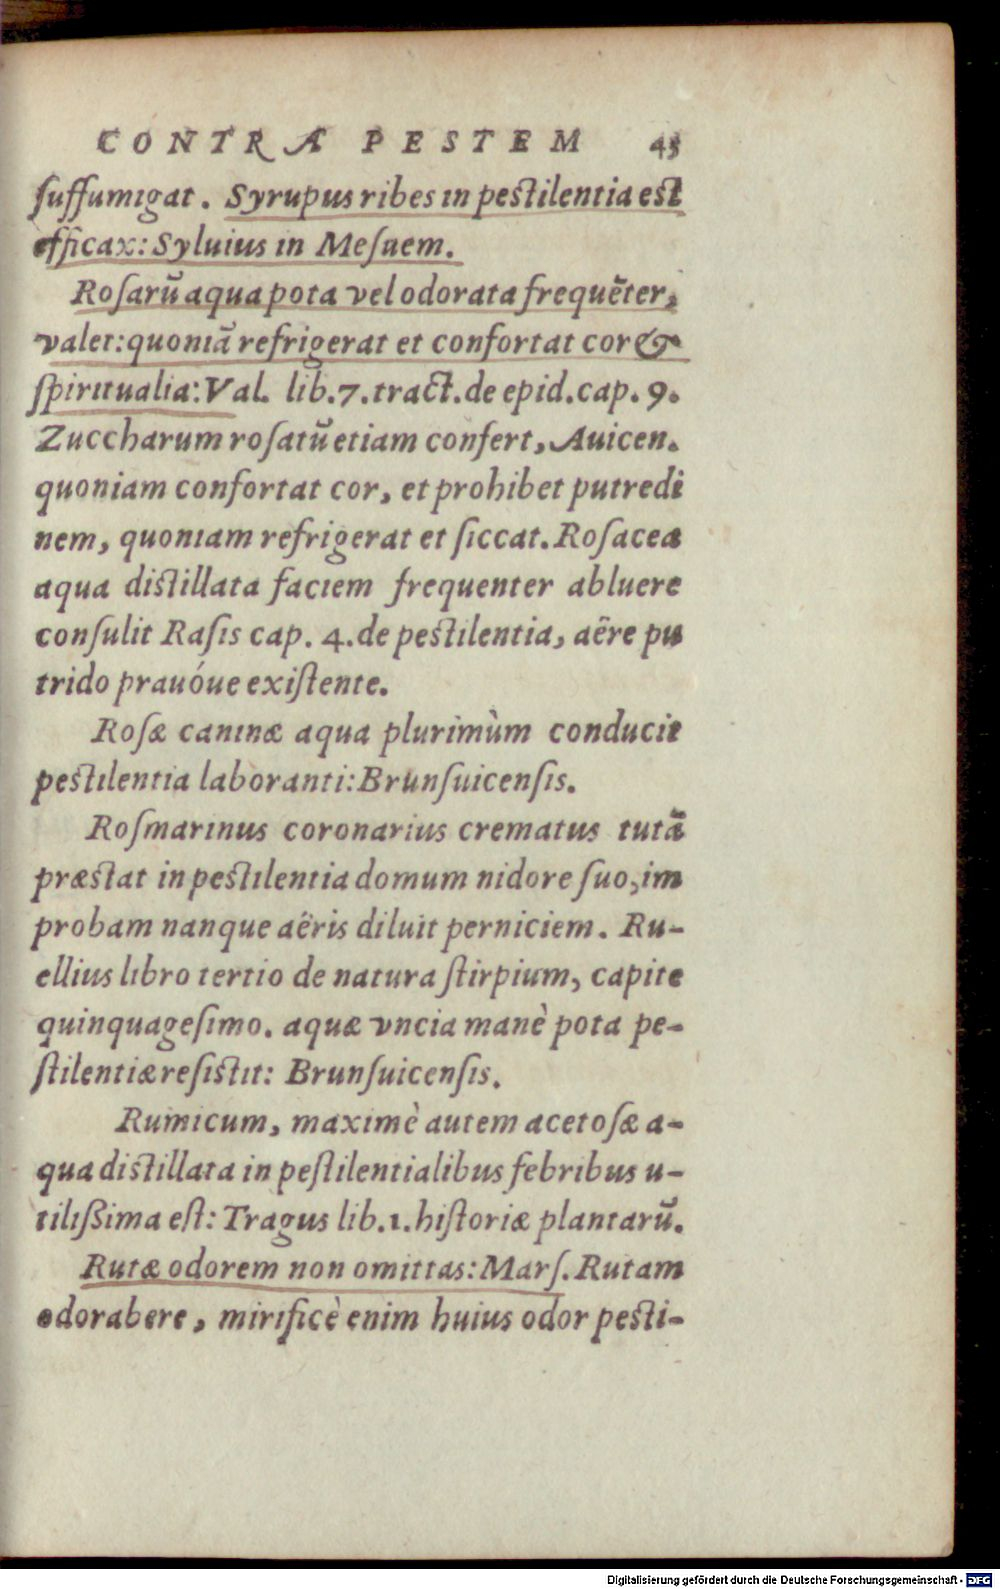 CONTRA PESTEM 45
ſuffumigat. Syrupus ribes in peſtilentia eſt
efficax: Syluius in Meſuem.
Roſarũ aqua pota vel odorata frequẽter,
valet: quoniã refrigerat et confortat cor &
ſpiritualia: Val. lib. 7. tract. de epid. cap. 9.
Zuccharum roſatũ etiam confert, Auicen.
quoniam confortat cor, et prohibet putredi
nem, quoniam refrigerat et ſiccat. Roſacea
aqua diſtillata faciem frequenter abluere
conſulit Raſis cap. 4. de peſtilentia, aëre pu
trido prauóue exiſtente.
Roſæ caninæ aqua plurimùm conducit
peſtilentia laboranti: Brunſuicenſis.
Roſmarinus coronarius crematus tutã
præſtat in peſtilentia domum nidore ſuo, im
probam nanque aëris diluit perniciem. Ru-
ellius libro tertio de natura ſtirpium, capite
quinquageſimo. aquæ vncia manè pota pe-
ſtilentiæ reſiſtit: Brunſuicenſis.
Rumicum, maximè autem acetoſæ a-
qua diſtillata in peſtilentialibus febribus u-
tilißima eſt: Tragus lib. 1. hiſtoriæ plantarũ.
Rutæ odorem non omittas: Marſ. Rutam
odorabere, mirificè enim huius odor peſti-
Digitalisierung gefördert durch die Deutsche Forschungsgemeinschaft - DFG